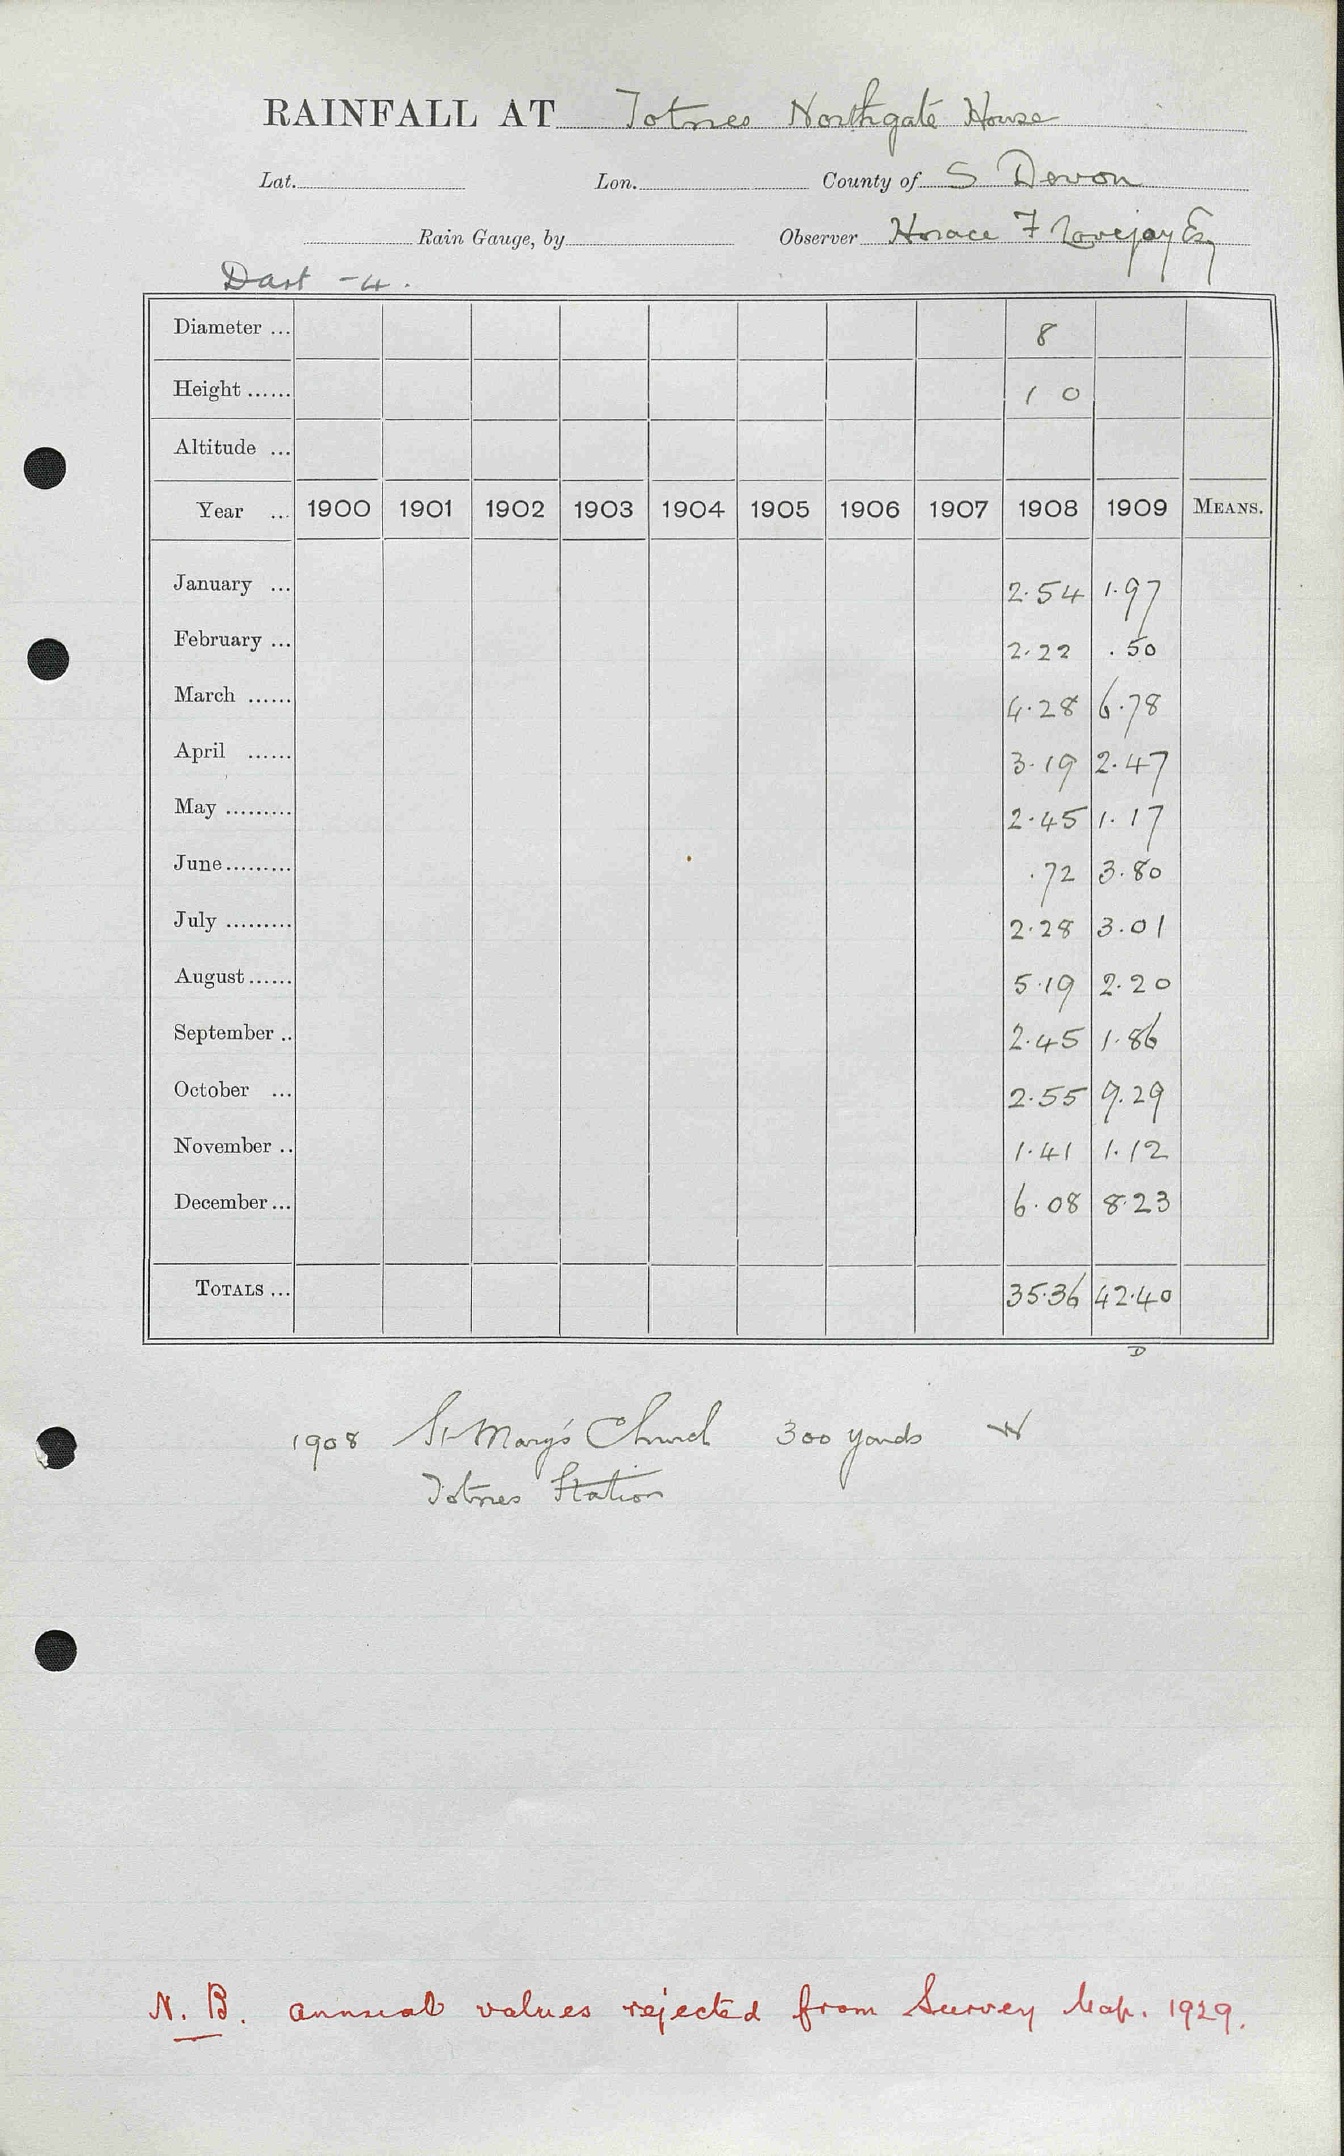 RAINFALL AT Totnes Northgate House
Lat. Lon. County of S Devon
Rain Gauge, by Observer Horace F Lovejoy Esq
Dart - 4.
Diameter ... 8
Height ...... 1 0
Altitude ...
Year ... 1900 1901 1902 1903 1904 1905 1906 1907 1908 1909 MEANS.
January ... 2.54 1.97
February ... 2.22 .50
March ...... 4.28 6.78
April ...... 3.19 2.47
May ......... 2.45 1.17
June ......... .72 3.80
July ......... 2.28 3.01
August ...... 5.19 2.20
September .. 2.45 1.86
October ... 2.55 9.29
November .. 1.41 1.12
December ... 6.08 8.23
TOTALS ... 35.36 42.40
D
1908 St Mary's Church 300 yards W
Totnes Station
N.B. annual values rejected from Survey Map. 1929.